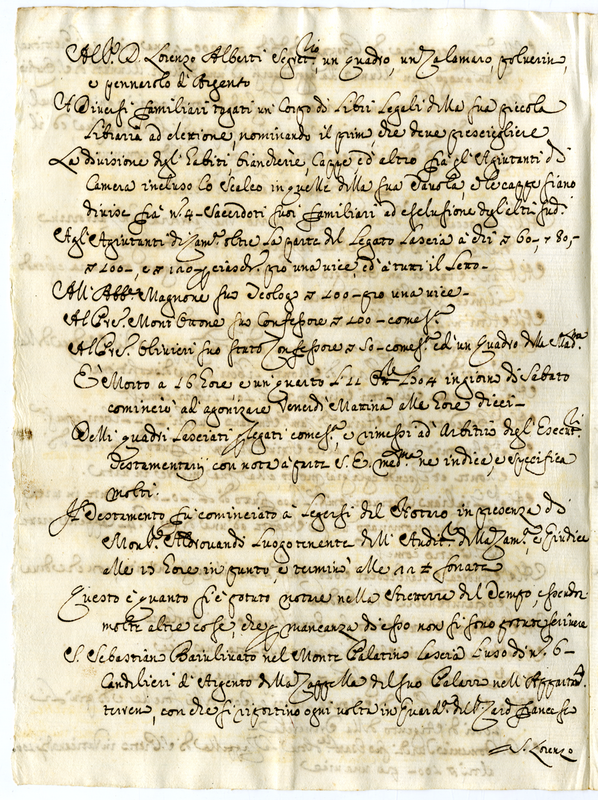 Al Sr. D. Lorenzo Alberti Segretrio, un quadro, un Calamaro, polverin,
e pennarolo d'Argento
A Diversi familiari togati un Corpo di Libri Legali della sua piccola
libraria ad elettione, nominando il primo, che deve prescegliere
La divisione degl'habiti biancherie, Cappe ed altro frà gl'Agiutanti di
Camera incluso lo Scalco in quelle della sua Tavola, e le cappe siano
divise frà n.o 4 - Sacerdoti suoi familiari ad esclusione degl'altri sud.i
Agl'Agiutanti di Cam.a oltre la parte del Legato Lascia à chi 60 -, 80, -
100 -, e 120 pro una vice, ed à tutti il Letto -
All'Abbe Magnone suo Teologo 100 - pro una vice -
Al Pre. Mont'Ottone suo Confessore 100 - come s.a
Al Pre. Olivieri suo stato Confessore 50 - come s.a ed un Quadro della Madna
È Morto a 16 hore e un quarto L'11 1704 in giorno di Sabato
cominciò ad agonizare Venerdi Mattina alle hore dieci -
Delli quadri Lasciati legati come s.a e rimessi ad Arbitrio degl'Esecutri
Testamentarij con nota à parte S. E. medma ne indica, e specifica
molti.
Il Testamento fù cominciato à legersi dal Notaro in presenza di
Monsr. Aldrovandi Luogotenente dell'Auditre della Cam.a, e Giudice
alle 17 hore in punto, e terminò alle sonate
Questo è quanto si è potuto notare nella strettezza del Tempo, essendo
molte altre cose, che p mancanza di esso non si sono potute scrivere
S. Sebastian nel Monte Palatino Lascia L'uso di n.o 6 -
Candilieri d'Argento della Cappella del suo Palazzo nell'Appartamto
terreno, con che si riportino ogni volta in Guarda. dell Card. Francesco
S. Lorenzo